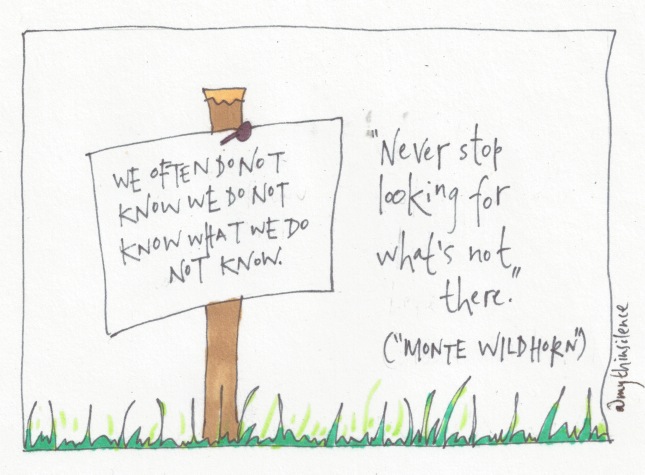 WE OFTEN DO NOT
KNOW WE DO NOT
KNOW WHAT WE DO
NOT KNOW.
"Never stop
looking for
what's not
there."
("MONTE WILDHORN")
@mythinsilence